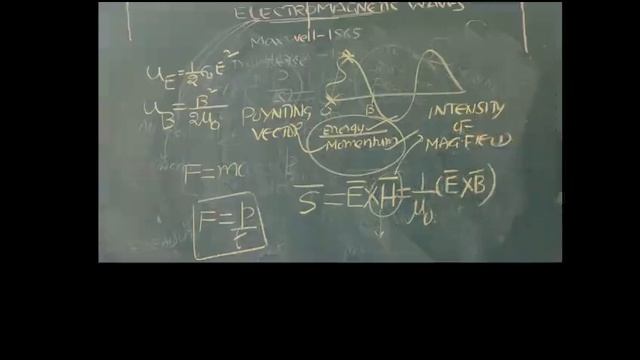 ELECTROMAGNETIC WAVES
Maxwell-1865
u_E = 1/2 ε₀E²
u_B = B²/2μ₀
POYNTING
VECTOR
Energy
Momentum
INTENSITY
OF
MAG.FIELD
B
F=ma
S̅ = E̅×H̅ = 1/μ₀ (E̅×B̅)
F=p/t